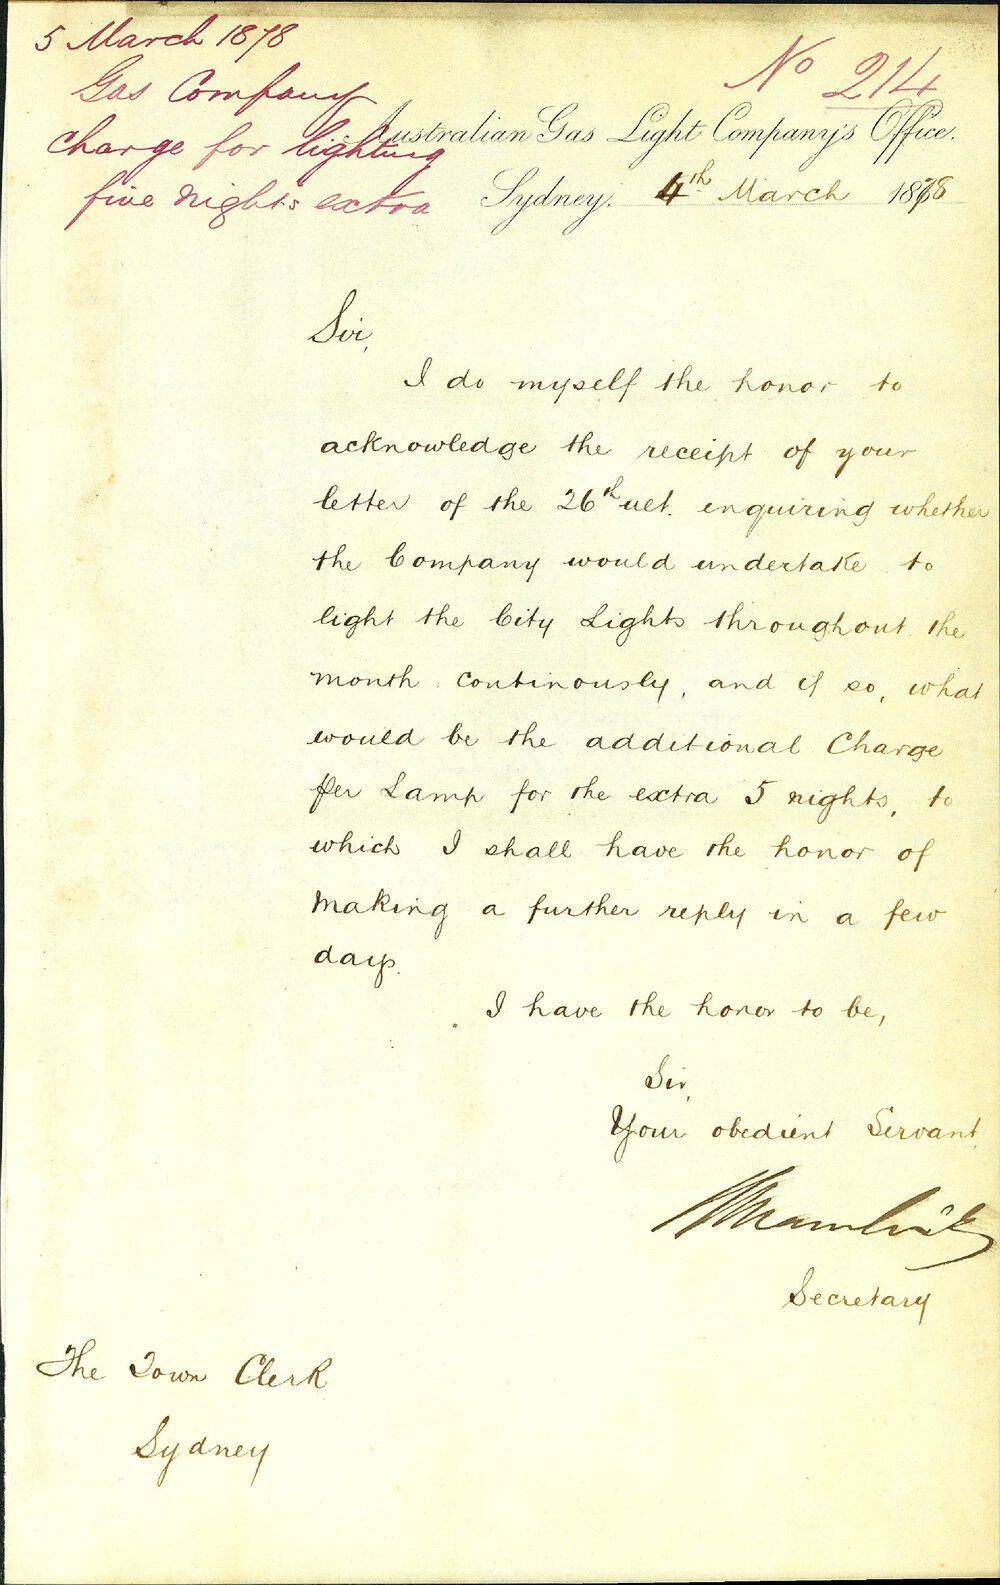 5 March 1878
Gas Company
charge for lighting
five nights extra
No 214
Australian Gas Light Company's Office.
Sydney. 4th March 1878
Sir,
I do myself the honor to
acknowledge the receipt of your
letter of the 26th ult. enquiring whether
the Company would undertake to
light the City Lights throughout the
month continously, and if so, what
would be the additional Charge
per Lamp for the extra 5 nights, to
which I shall have the honor of
making a further reply in a few
days.
I have the honor to be,
Sir,
Your obedient Servant
Secretary
The Town Clerk
Sydney